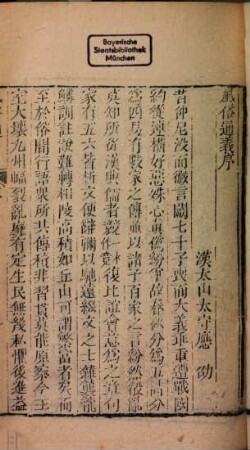 Bayerische
Staatsbibliothek
München
風俗通義序
漢太山太守應劭
昔仲尼沒而微言闕七十子喪而大義乖重遭戰國
約從連橫好惡殊心真偽紛爭故春秋分為五詩分
為四易有數家之傳並以諸子百家之言紛然殽亂
莫知所從漢興儒者競復比誼會意為之章句
家有五六皆析文便辭彌以馳遠綴文之士雜襲龍
鱗訓註說難轉相陵高積如丘山可謂繁富者矣而
至於俗間行語眾所共傳積非習貫莫能原察今王
室大壞九州幅裂亂靡有定生民無幾私懼後進益